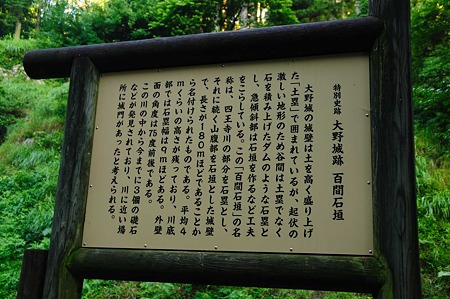 特別史跡 大野城跡 百間石垣
大野城の城壁は土を高く盛り上げ
た「土塁」で囲まれているが、起伏の
激しい地形のため谷間は土塁でなく
石を積み上げたダムのような石塁と
し、急傾斜部は石垣を作るなど工夫
をこらしている。この「百間石垣」の名
称は、四王寺川の部分を石塁とし、
それに続く山腹部を石垣とした城壁
で、長さが180mほどであることか
ら名付けられたものである。平均4
mくらいの高さが残っており、川底
部では石塁幅は9mほどある。外壁
面の角度は75度前後である。
この川の中から今までに3個の礎石
などが発見されており、川に近い場
所に城門があったと考えられる。